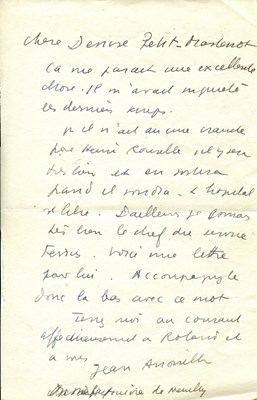 chere Denise Petit-
ça me parait une excellente
chose. Il m'avait inquiété
les derniers temps.
il n'ait aucune crainte
par Henri
très bien et en sortira
quand il voudra. L'hopital
est libre. D'ailleurs je connais
très bien le chef du service
Voici une lettre
pour lui. Accompagnez le
donc la bas avec ce mot
Tenez moi au courant
affectueusement a Roland et
a vous
Jean Anouilh
de Neuilly